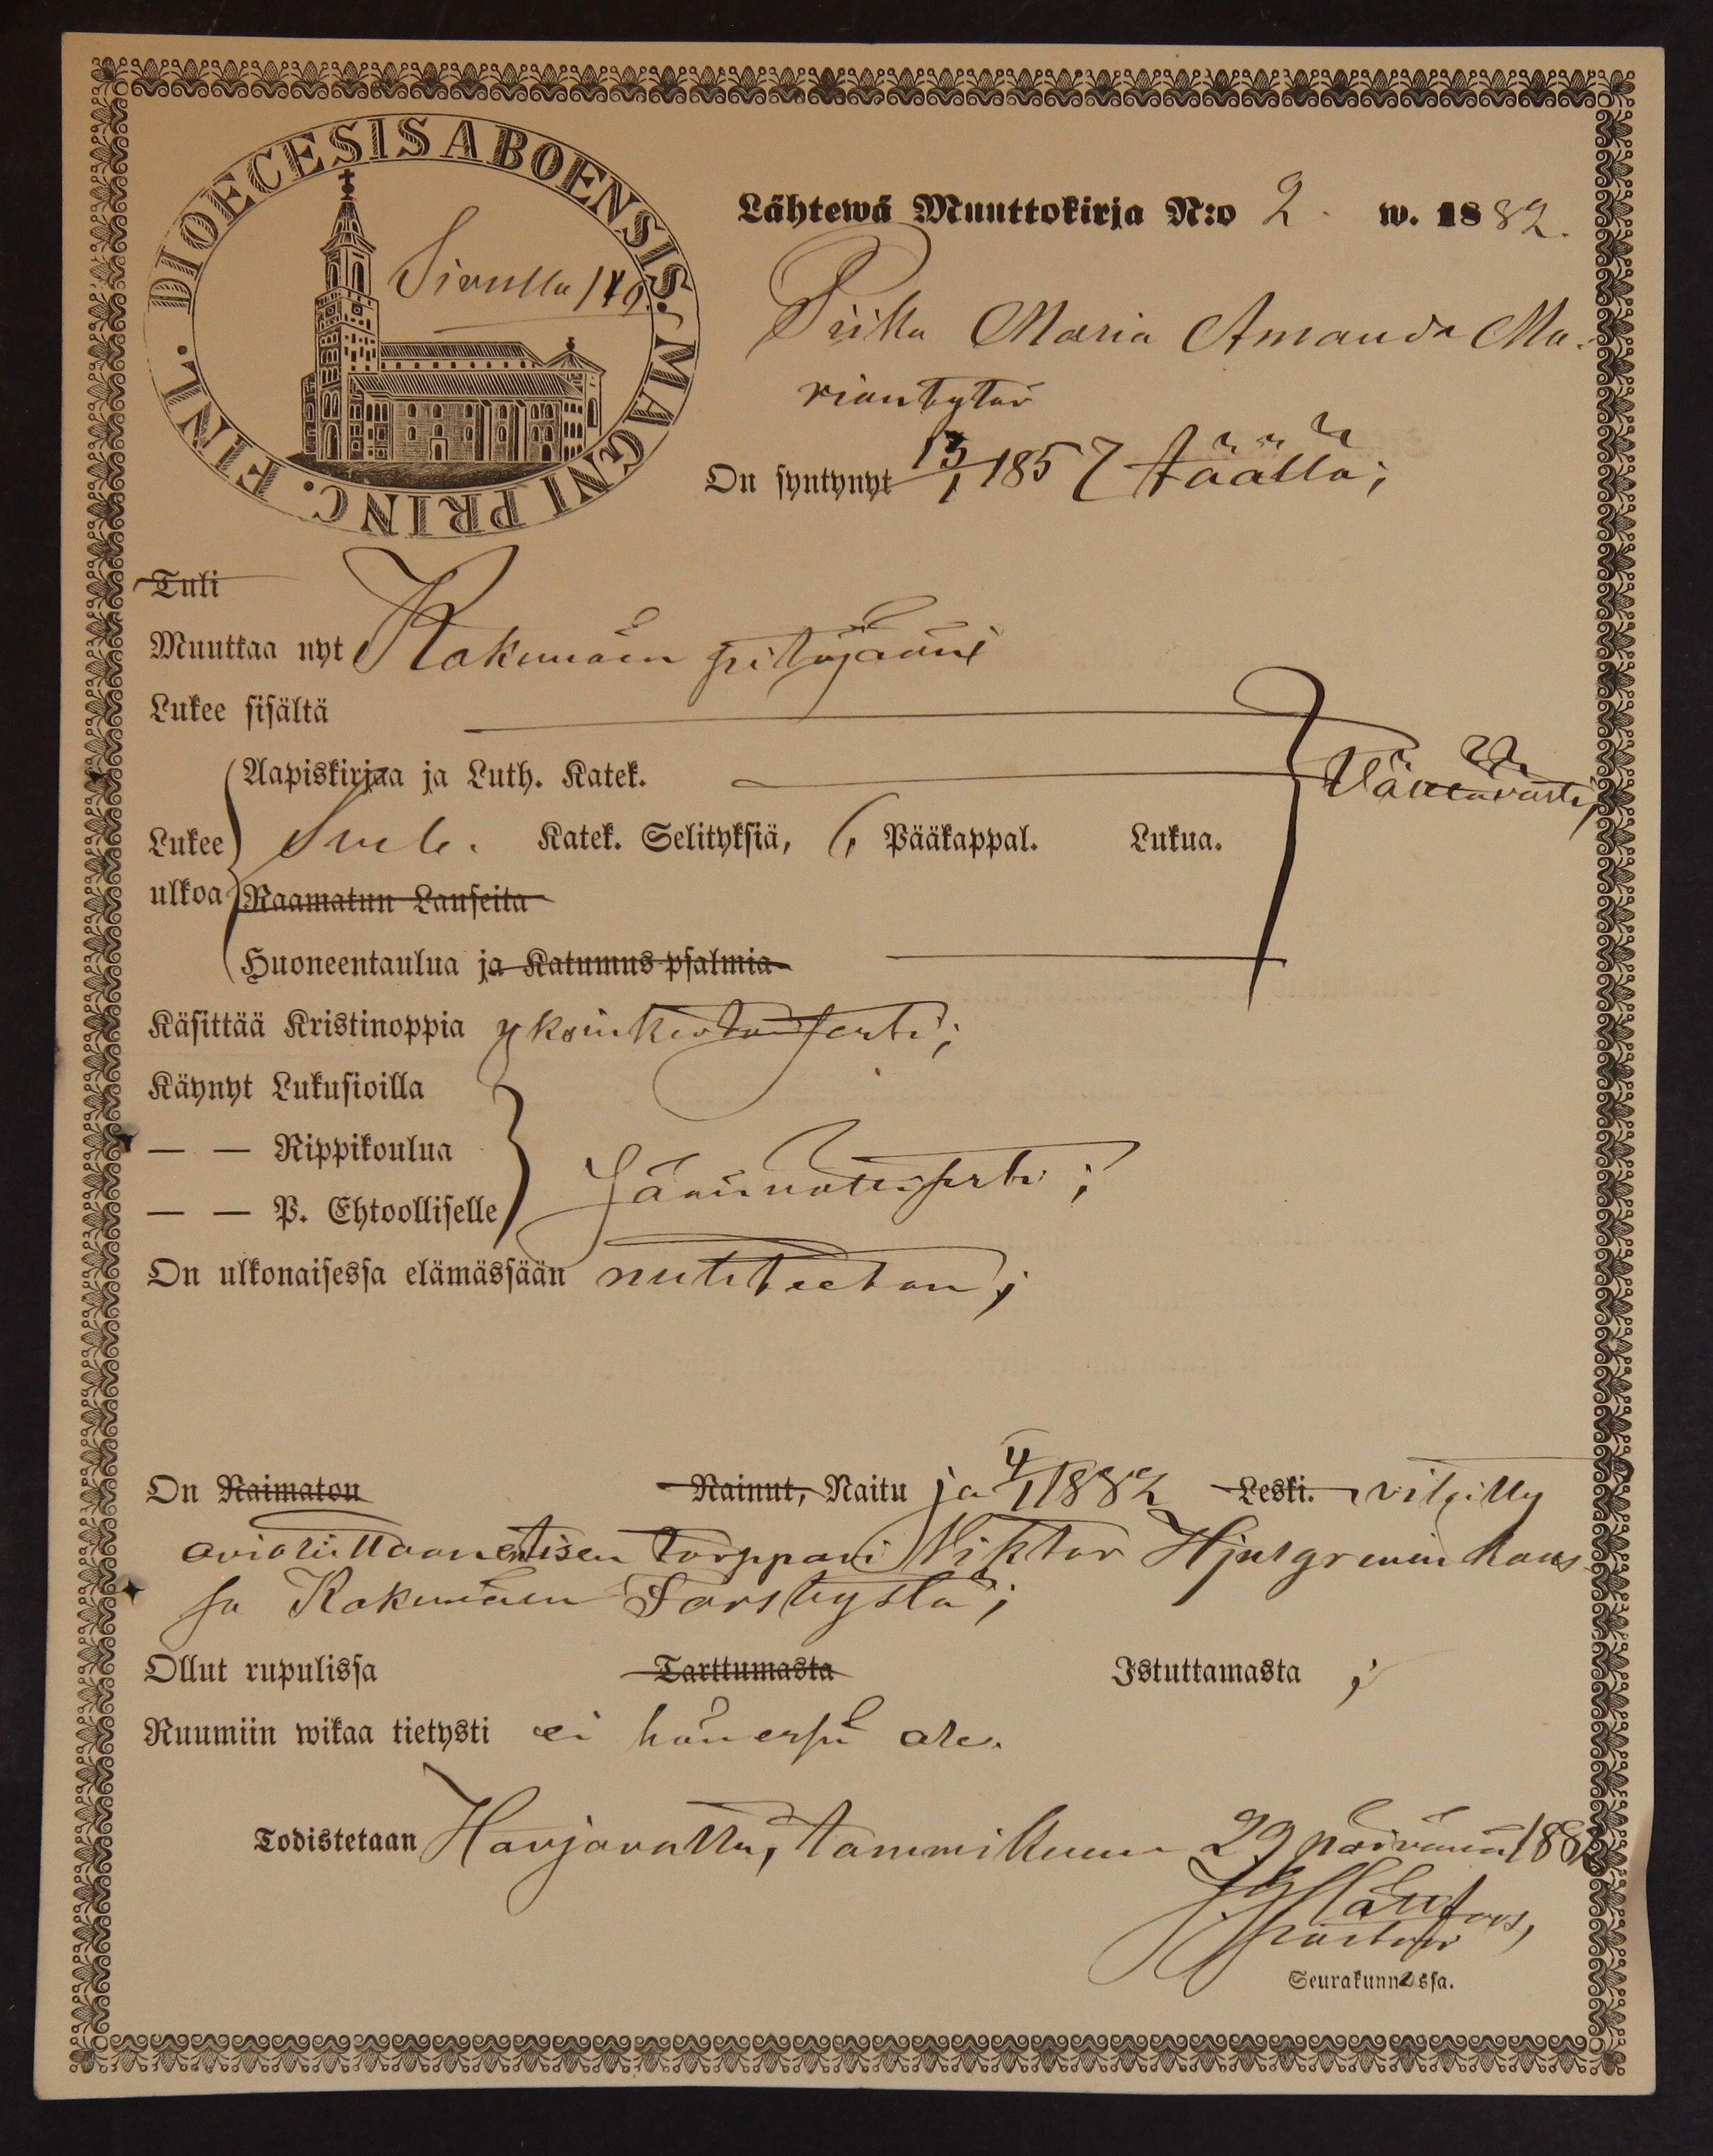 DIOECESIS ABOENSIS. MAGNI PRINC. FINL.
Sivulla 149.
Lähtewä Muuttokirja N:o 2. w. 1882.
Piika Maria Amanda Ma-
riantytär
On syntynyt 13/1 1857 täällä;
Tuli
Muuttaa nyt Kokemäen pitäjääni
Lukee sisältä
Aapiskirjaa ja Luth. Katek.
Lukee Katek. Selityksiä, 6 Pääkappal. Lukua.
ulkoa Raamatun Lauseita
Huoneentaulua ja Katumus-psalmia
Käsittää Kristinoppia yksinkertaisesti;
Käynyt Lukusioilla
— — Rippikoulua
— — P. Ehtoolliselle säännöllisesti;
On ulkonaisessa elämässään nuhteeton;
On Naimaton Nainut, Naitu ja 4/1 1882 Leski. vihitty
avioliittoon entisen torppari Viktor Hjulgrenin kans-
sa Kokemäen Forsbystä;
Ollut rupulissa Tarttumasta Istuttamasta;
Ruumiin wikaa tietysti ei hänessä ole.
Todistetaan Harjavalta, tammikuun 29 päivänä 1882
Seurakunnassa.